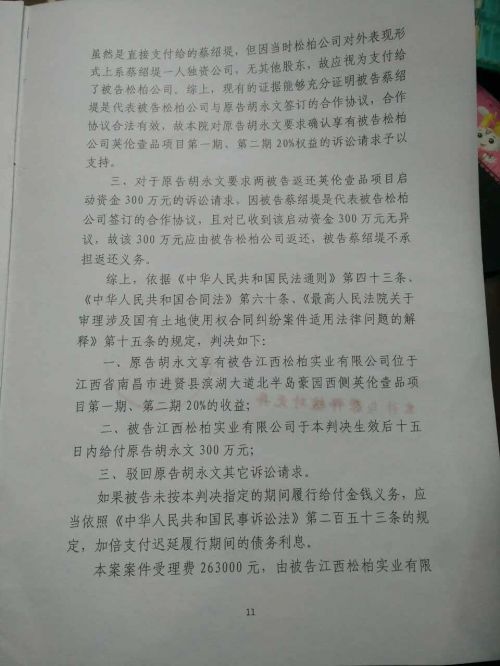 虽然是直接支付给的蔡绍堤，但因当时松柏公司对外表现形
式上系蔡绍堤一人独资公司，无其他股东，故应视为支付给
了被告松柏公司。综上，现有的证据能够充分证明被告蔡绍
堤是代表被告松柏公司与原告胡永文签订的合作协议，合作
协议合法有效，故本院对原告胡永文要求确认享有被告松柏公
司英伦壹品项目第一期、第二期20%权益的诉讼请求予以
支持。
三、对于原告胡永文要求两被告返还英伦壹品项目启
动资金 300 万元的诉讼请求，因被告蔡绍堤是代表被告松柏
公司签订的合作协议，且对已收到该启动资金 300 万元无异
议，故该 300 万元应由被告松柏公司返还，被告蔡绍堤不承
担返还义务。
综上，依据《中华人民共和国民法通则》第四十三条、
《中华人民共和国合同法》第六十条、《最高人民法院关于
审理涉及国有土地使用权合同纠纷案件适用法律问题的解
释》第十五条的规定，判决如下：
一、原告胡永文享有被告江西松柏实业有限公司位于
江西省南昌市进贤县滨湖大道北半岛豪园西侧英伦壹品项
目第一期、第二期 20%的收益；
二、被告江西松柏实业有限公司于本判决生效后十五
日内给付原告胡永文 300 万元；
三、驳回原告胡永文其它诉讼请求。
如果被告未按本判决指定的期间履行给付金钱义务，应
当依照《中华人民共和国民事诉讼法》第二百五十三条的规
定，加倍支付迟延履行期间的债务利息。
本案案件受理费 263000 元，由被告江西松柏实业有限
11